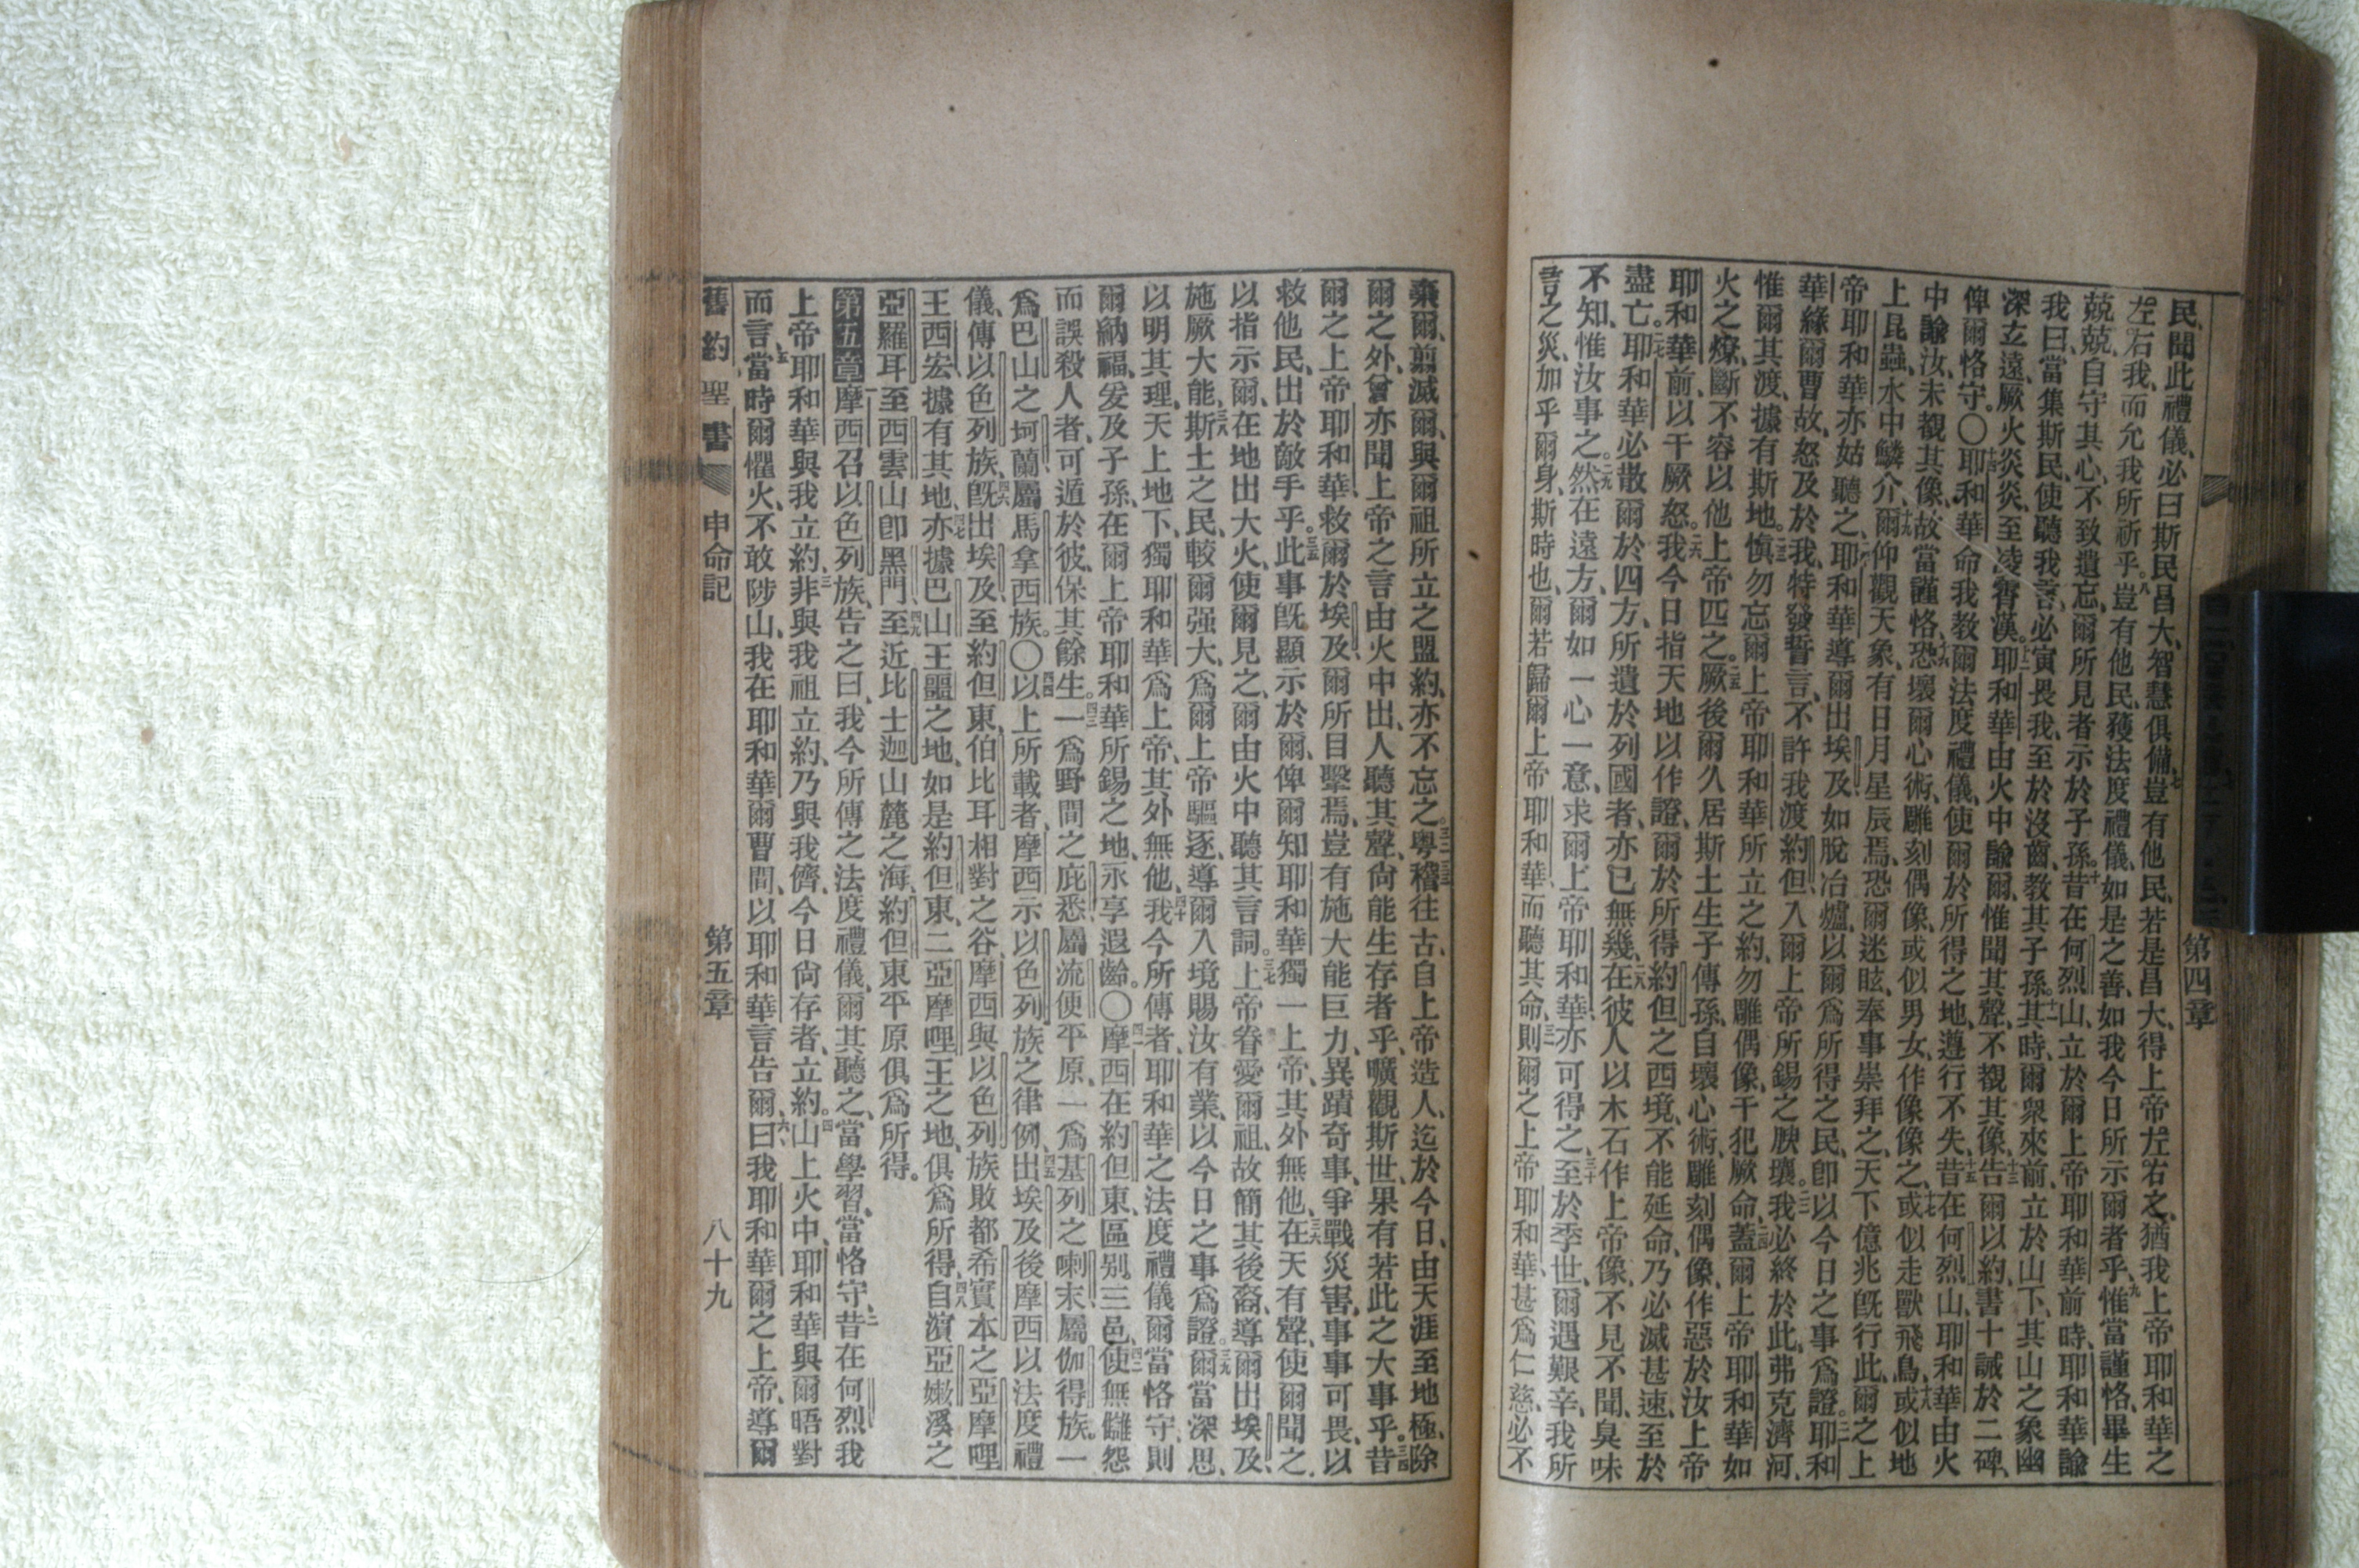 民、聞此禮儀、必曰斯民昌大、智慧俱備、七豈有他民、若是昌大、得上帝左右之、猶我上帝耶和華之
左右我、而允我所祈乎。八豈有他民、獲法度禮儀、如是之善、如我今日所示爾者乎、九惟當謹恪、畢生
兢兢、自守其心、不致遺忘、爾所見者示於子孫。十昔在何烈山、立於爾上帝耶和華前時、耶和華諭
我曰、當集斯民、使聽我言、必寅畏我、至於沒齒、教其子孫。十一其時、爾衆來前、立於山下、其山之象幽
深玄遠、厥火炎炎、至凌霄漢。十二耶和華由火中諭爾、惟聞其聲、不覩其像、十三告爾以約、書十誡於二碑、
俾爾恪守。〇十四耶和華命我教爾法度禮儀、使爾於所得之地、遵行不失、十五昔在何烈山、耶和華由火
中諭汝、未覩其像、故當謹恪、十六恐壞爾心術、雕刻偶像、或似男女、作像像之、十七或似走獸飛鳥、十八或似地
上昆蟲、水中鱗介、十九爾仰觀天象、有日月星辰焉、恐爾迷眩、奉事崇拜之、天下億兆旣行此、爾之上
帝耶和華亦姑聽之、二十耶和華導爾出埃及、如脫冶爐、以爾爲所得之民、卽以今日之事爲證。二一耶和
華緣爾曹故、怒及於我、特發誓言、不許我渡約但、入爾上帝所錫之腴壤。二二我必終於此、弗克濟河、
惟爾其渡、據有斯地。二三愼勿忘爾上帝耶和華所立之約、勿雕偶像、干犯厥命、二四蓋爾上帝耶和華如
火之燎、斷不容以他上帝匹之。二五厥後爾久居斯土、生子傳孫、自壞心術、雕刻偶像、作惡於汝上帝
耶和華前、以干厥怒。二六我今日指天地以作證、爾於所得約但之西境、不能延命、乃必滅甚速、至於
盡亡。二七耶和華必散爾於四方、所遺於列國者、亦已無幾、二八在彼人以木石作上帝像、不見不聞、臭味
不知、惟汝事之。二九然在遠方、爾如一心一意、求爾上帝耶和華、亦可得之、三十至於季世、爾遇艱辛、我所
言之災、加乎爾身、斯時也、爾若歸爾上帝耶和華、而聽其命、三一則爾之上帝耶和華、甚爲仁慈、必不
第四章
棄爾、翦滅爾、與爾祖所立之盟約、亦不忘之。三二粤稽往古、自上帝造人、迄於今日、由天涯至地極、除
爾之外、曾亦聞上帝之言由火中出、人聽其聲、尙能生存者乎、曠觀斯世、果有若此之大事乎。三四昔
爾之上帝耶和華、救爾於埃及、爾所目擊焉、豈有施大能巨力、異蹟奇事、爭戰災害、事事可畏、以
救他民、出於敵手乎。三五此事旣顯示於爾、俾爾知耶和華獨一上帝、其外無他、三六在天有聲、使爾聞之、
以指示爾、在地出大火、使爾見之、爾由火中聽其言詞。三七上帝眷愛爾祖、故簡其後裔、導爾出埃及、
施厥大能、三八斯土之民、較爾强大、爲爾上帝驅逐、導爾入境、賜汝有業、以今日之事爲證。三九爾當深思、
以明其理、天上地下、獨耶和華爲上帝、其外無他、四十我今所傳者、耶和華之法度禮儀、爾當恪守、則
爾納福、爰及子孫、在爾上帝耶和華所錫之地、永享遐齡。〇四一摩西在約但東、區别三邑、四二使無讎怨
而誤殺人者、可遁於彼、保其餘生。四三一爲野間之庇悉、屬流便平原、一爲基列之喇末、屬伽得族。一
爲巴山之坷蘭、屬馬拿西族。〇四四以上所載者、摩西示以色列族之律例、四五出埃及後、摩西以法度禮
儀、傳以色列族、四六旣出埃及、至約但東、伯比耳相對之谷、摩西與以色列族敗都希實本之亞摩哩
王西宏、據有其地、四七亦據巴山王噩之地、如是約但東、二亞摩哩王之地、俱爲所得、四八自濱亞嫩溪之
亞羅耳、至西雲山卽黑門、四九至近比士迦山麓之海、約但東平原俱爲所得。
第五章 摩西召以色列族、告之曰、我今所傳之法度禮儀、爾其聽之、當學習、當恪守、二昔在何烈我
上帝耶和華與我立約、三非與我祖立約、乃與我儕、今日尙存者、立約。四山上火中、耶和華與爾晤對
而言、五當時爾懼火、不敢陟山、我在耶和華爾曹間、以耶和華言告爾、六曰、我耶和華爾之上帝、導爾
舊約聖書 申命記 第五章 八十九